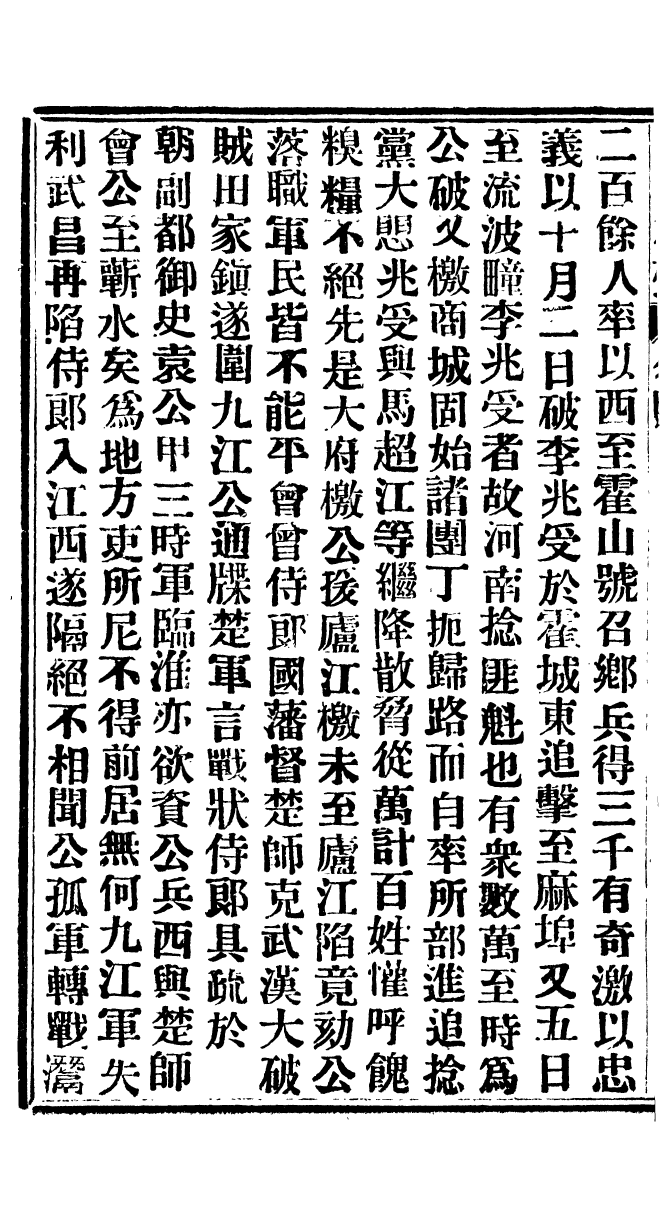 二百餘人率以西至霍山號召鄉兵得三千有奇激以忠
義以十月二日破李兆受於霍城東追擊至麻埠又五日
至流波疃李兆受者故河南捻匪魁也有衆數萬至時爲
公破又檄商城固始諸團丁扼歸路而自率所部進追捻
黨大恐兆受與馬超江等繼降散脅從萬計百姓懽呼餽
糗糧不絕先是大府檄公援廬江檄未至廬江陷竟劾公
落職軍民皆不能平會曾侍郎國藩督楚師克武漢大破
賊田家鎭遂圍九江公通牒楚軍言戰狀侍郎具疏於
朝副都御史袁公甲三時軍臨淮亦欲資公兵西與楚師
會公至蘄水矣爲地方吏所尼不得前居無何九江軍失
利武昌再陷侍郎入江西遂隔絕不相聞公孤軍轉戰灊